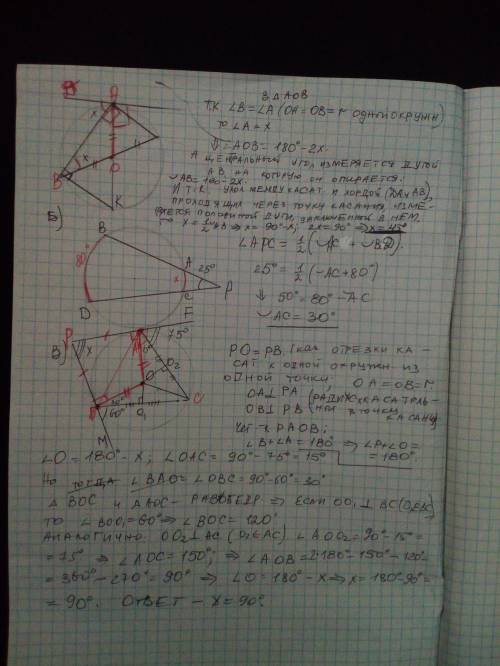 В ΔAOB
Т.К. ∠B=∠A (OA=OB=r одной окружн)
то ∠A=X
⇓ ∠AOB = 180°-2X.
А центральный угол измеряется дугой
AB, на которую он опирается:
◡AB=180-2X.
И т.к. угол между касат и хордой (DA и AB),
проходящий через точку касания, изме-
ряется половиной дуги, заключенной в нем.
то X=½◡AB ⇒ X=90°-X; 2X=90° ⇒ X=45°
Б)
∠APC = ½(◡AC + ◡BD)
25° = ½(-AC+80°)
⇓ 50°=80°-AC
◡AC=30°
В)
PO=PB, (как отрезки ка-
сат к одной окружн из
одной точки, OA=OB=r.
OA⊥PA (радиус к касатель-
OB⊥PB ной в точку
касания
Чет-к PAOB;
∠B+∠A=180° ⇒ ∠P+∠O=
=180°,
∠O=180°-X; ∠OAC=90°-75°=15°
Но тогда ∠BAO=∠OBC=90°-60°=30°
Δ BOC и ΔAOC- равнобедр. ⇒ если OO₁⊥BC(O₁∈BC)
то ∠BOO₁=60° ⇒ ∠BOC=120°
Аналогично: OO₂⊥AC (O₂∈AC) ∠AOO₂=90°-15°=
=75° ⇒ ∠AOC=150°; ⇒ ∠AOB=2·180°-150°-120°=
=360°-270°=90° ⇒ ∠O=180°-X ⇒ X=180°-90°=
=90°. Ответ - X=90°.